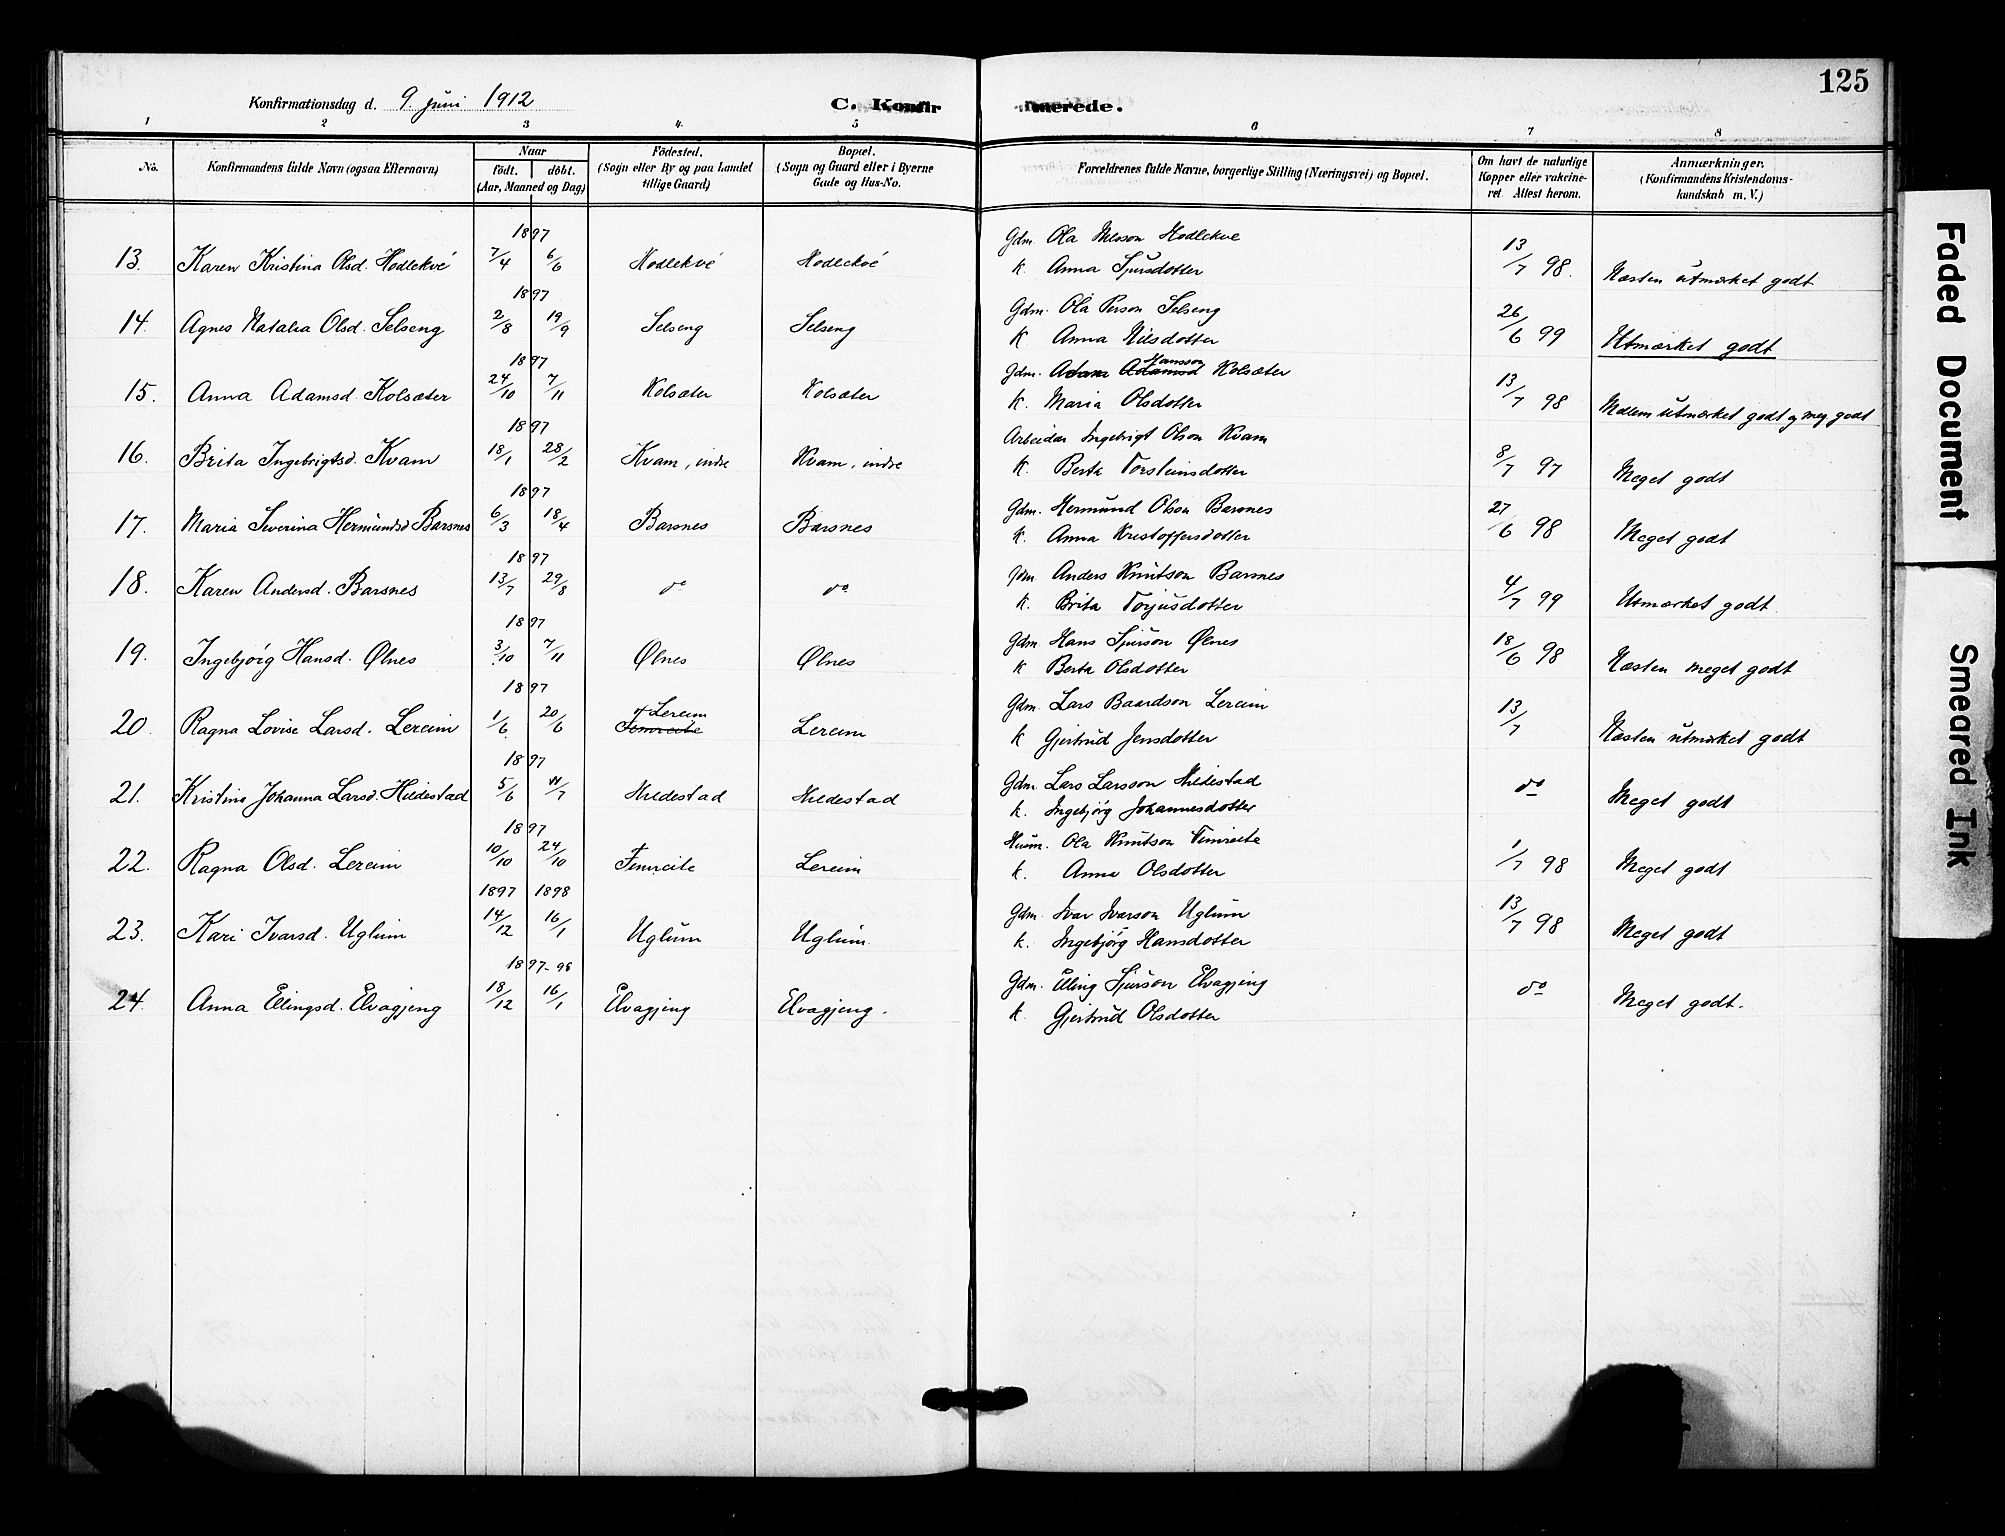 125
Konfirmationsdag d. 9. juni 1912
C. Konfirmerede.
1 2 3 4. 5 6 7 8
No.
Konfirmandens fulde Navn (ogsaa Efternavn)
Naar
födt. döbt.
(Aar, Maaned og Dag)
Födested.
(Sogn eller By og paa Landet
tillige Gaard)
Bopæl.
(Sogn og Gaard eller i Byerne
Gade og Hus-No.
Forældrenes fulde Navne, borgerlige Stilling (Næringsvei) og Bopæl.
Om havt de naturlige
Kopper eller vakcine-
ret Attest herom.
Anmærkninger.
(Konfirmandens Kristendoms-
kundskab m. V.)
1897
Gdm. Ola Hodlekve
13. Karen Kristina Olsd. Hodlekvé 7/4 6/6 Hodlekvé Hodlekvé K. Anna Sjursdotter 13/7 98. Næsten utmærket godt
1897
Gdm. Ola Person Selseng
14. Agnes Natalia Olsd. Selseng 2/8 19/9 Selseng Selseng K Anna Nilsdotter 26/6 99 Utmærket godt
1897
Gdm. Adam Adamsd Hansson Kolsæter
15. Anna Adamsd. Kolsæter 24/10 7/11 Kolsæter Kolsæter K. Maria Olsdotter 13/7 98 Mellem utmærket godt og meg. godt
1897
Arbeider Ingebrigt Olson Kvam
16. Brita Ingebrigtsd. Kvam 18/1 28/2 Kvam, indre Kvam, indre K. Berta Torsteinsdotter 8/7 97 Meget godt
1897
Gdm. Hermund Olson Barsnes
17. Maria Severina Hermundsd Barsnes 6/3 18/4 Barsnes Barsnes K. Anna Kristoffersdotter 27/6 98 Meget godt
1897
Gdm. Anders Knutson Barsnes
18. Karen Andersd. Barsnes 13/7 29/8 do do K. Brita Torjusdotter 4/7 99 Utmærket godt
1897
Gdm. Hans Sjurson Ølnes
19. Ingebjörg Hansd. Ølnes 3/10 7/11 Ølnes Ølnes K Berta Olsdotter 18/6 98 Næsten meget godt
1897
Gdm. Lars Baardson Lereim
20. Ragna Lovise Larsd. Lereim 1/6 20/6 Lereim Fimreite Lereim K Gjertrud Jensdotter 13/7 Næsten utmærket godt
1897
Gdm Lars Larsson Hildestad
21. Kristine Johanna Larsd. Hildestad 5/6 11/7 Hildestad Hildestad K. Ingebjörg Johannesdotter do Meget godt
1897
Husm. Ola Knutson Fimreite
22. Ragna Olsd. Lereim 10/10 24/10 Fimreite Lereim K. Anna Olsdotter 1/7 98 Meget godt
1897 1898
Gdm. Ivar Ivarson Uglum
23. Kari Ivarsd. Uglum 14/12 16/1 Uglum Uglum. K. Ingebjörg Hansdotter 13/7 98 Meget godt
1897-98
Gdm. Elling Sjurson Elvagjeng
24. Anna Ellingsd. Elvagjeng 18/12 16/1 Elvagjeng Elvagjeng. K. Gjertrud Olsdotter do Meget godt.
Faded Document
Smeared Ink